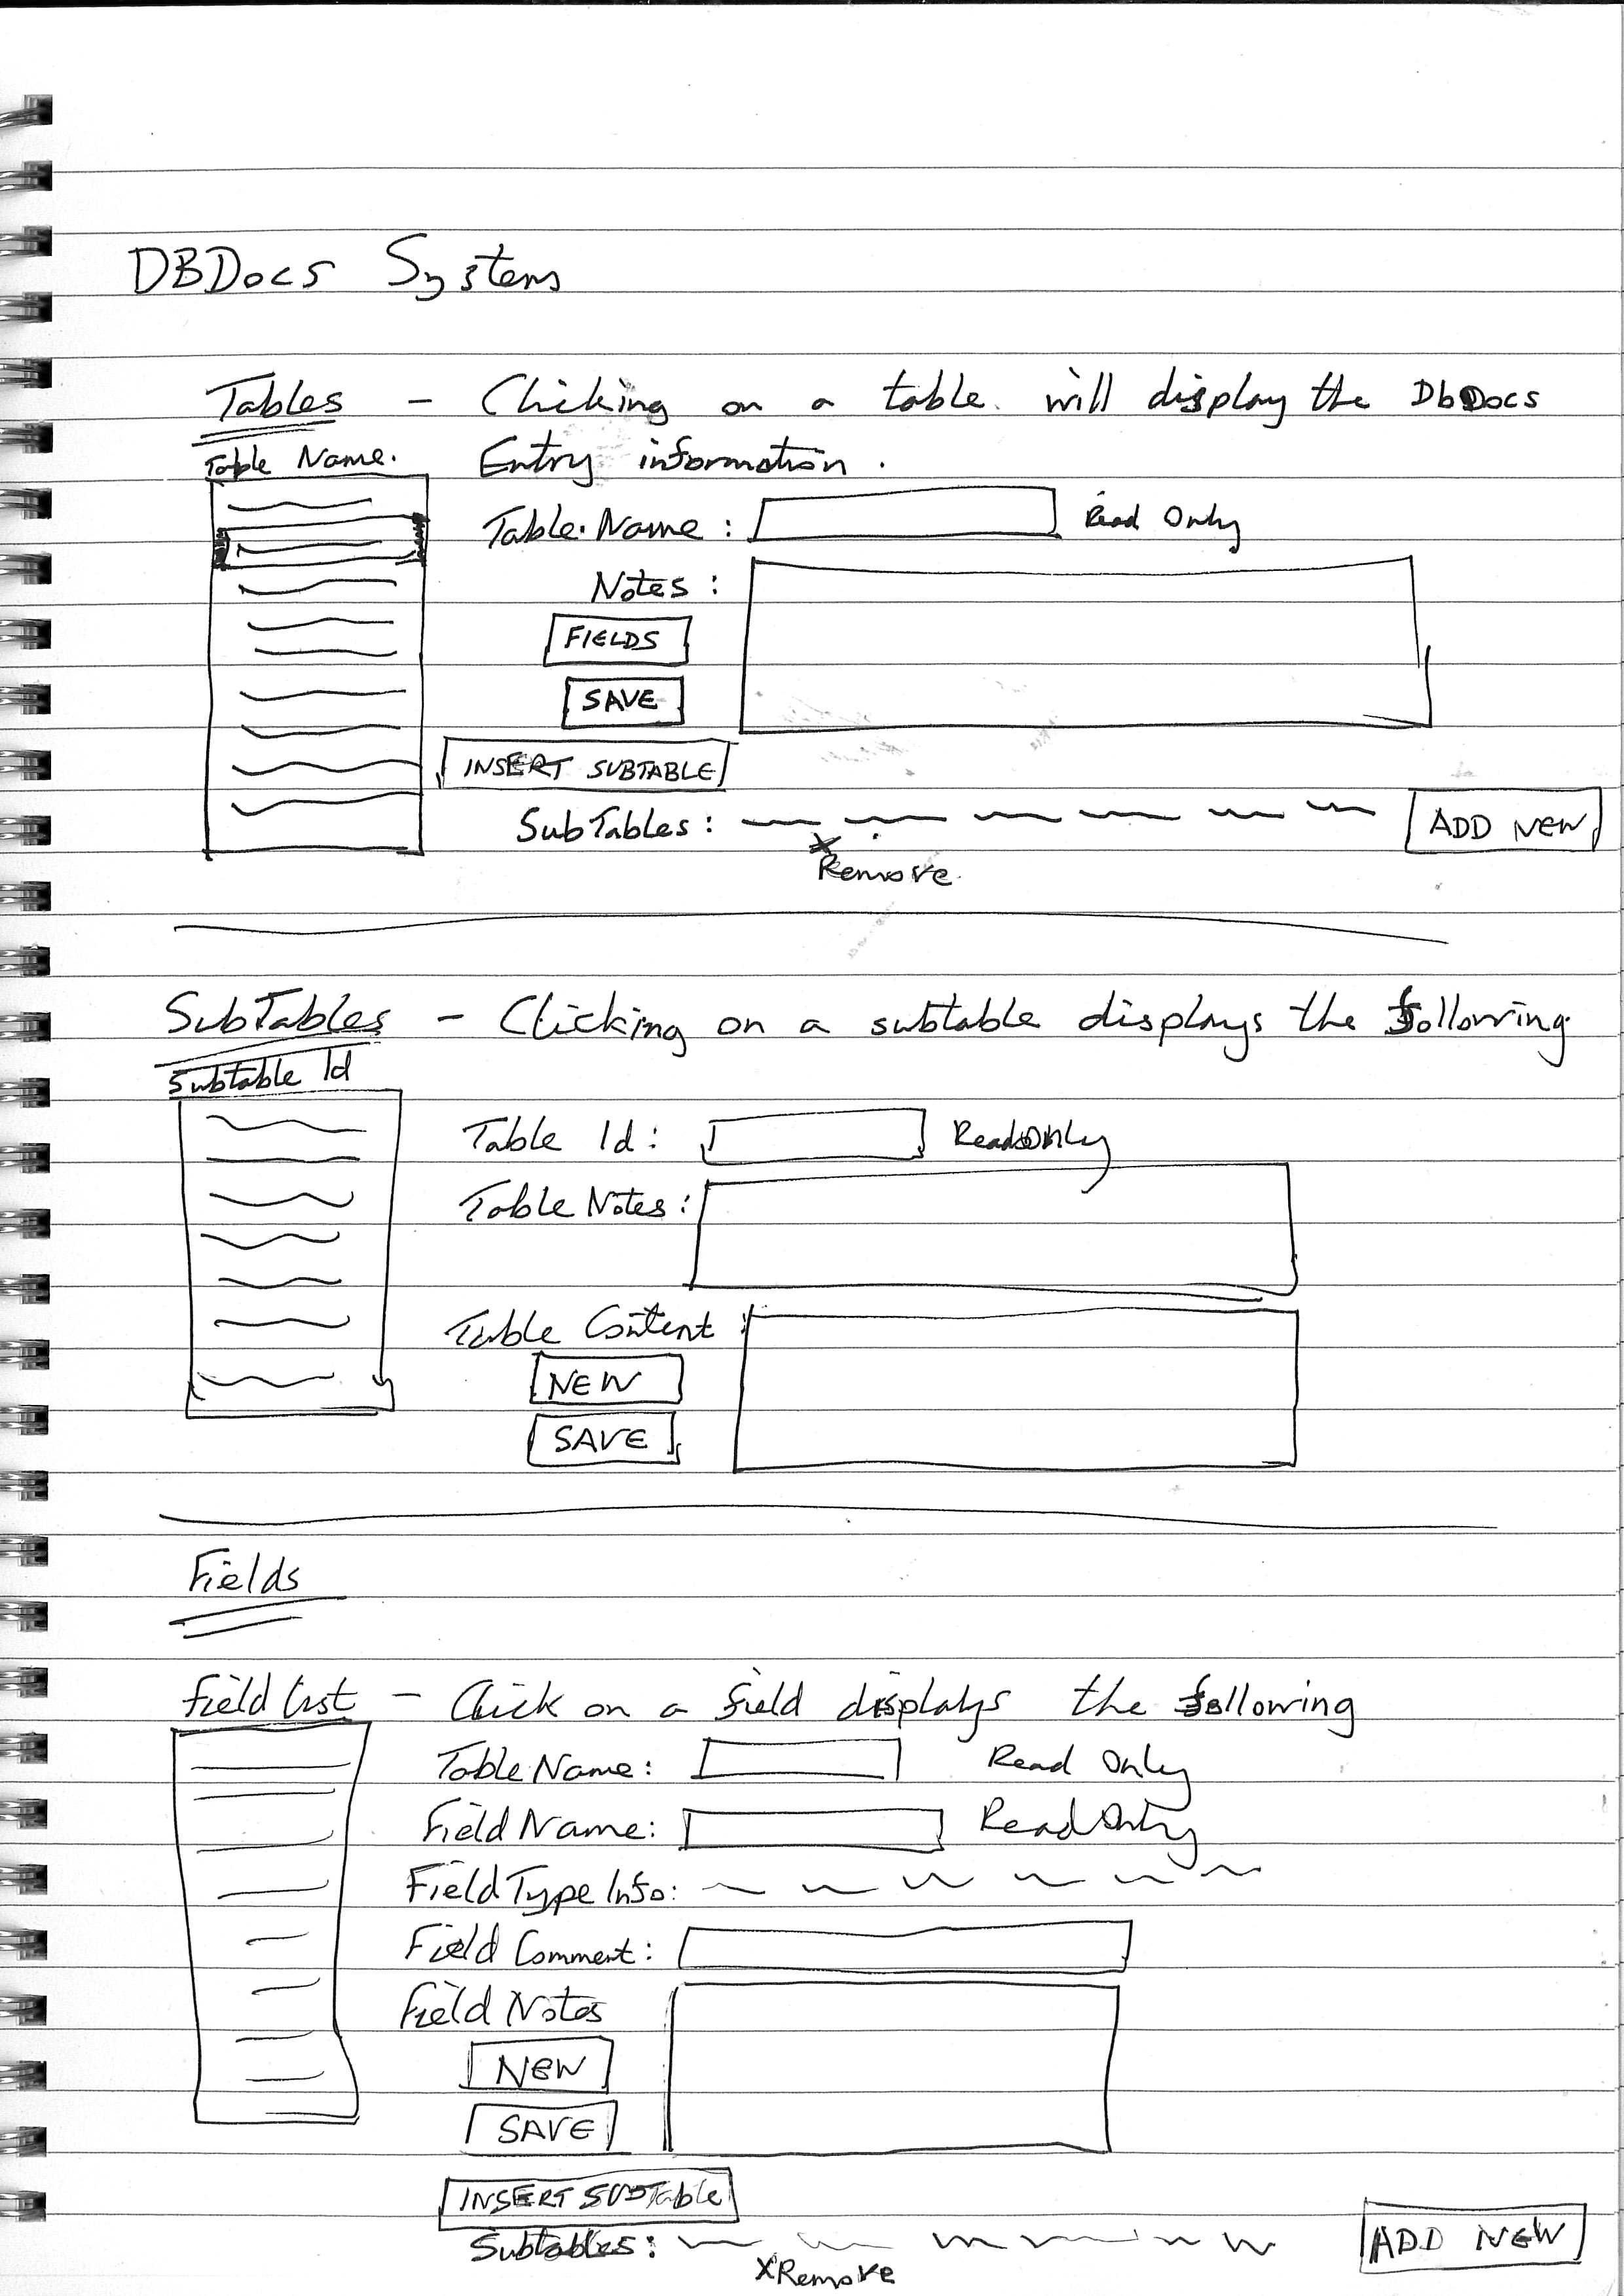 DBDocs System
Tables - Clicking on a table will display the DbDocs
Table Name. Entry information.
Table Name: Read Only
Notes:
FIELDS
SAVE
INSERT SUBTABLE
SubTables: ADD NEW
x
Remove
SubTables - Clicking on a subtable displays the following
Subtable Id
Table Id: Read Only
Table Notes:
Table Content:
NEW
SAVE
Fields
Field List - Click on a field displays the following
Table Name: Read Only
Field Name: Read Only
Field Type Info:
Field Comment:
Field Notes
NEW
SAVE
INSERT SUBTable
Subtables: ADD NEW
x Remove